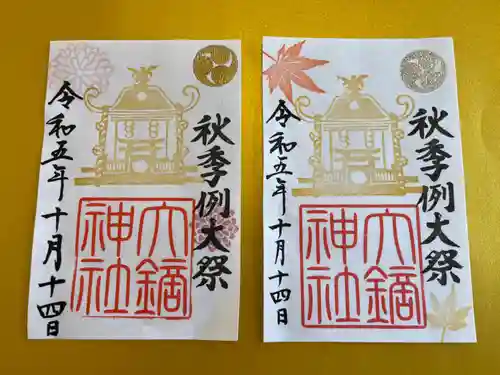 秋季例大祭
六鏑神社
令和五年十月十四日
秋季例大祭
六鏑神社
令和五年十月十四日